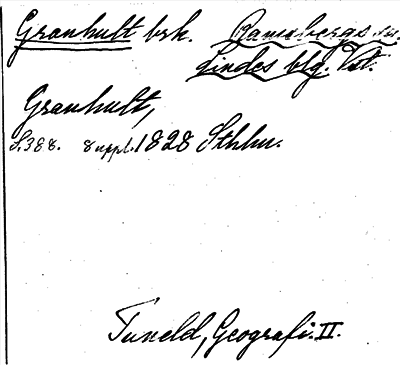 Granhult brk. Ramsbergs sn.
Lindes blg. Vst.
Granhult,
S. 388. suppl. 1828 Sthlm.
Tuneld, Geografi. II.